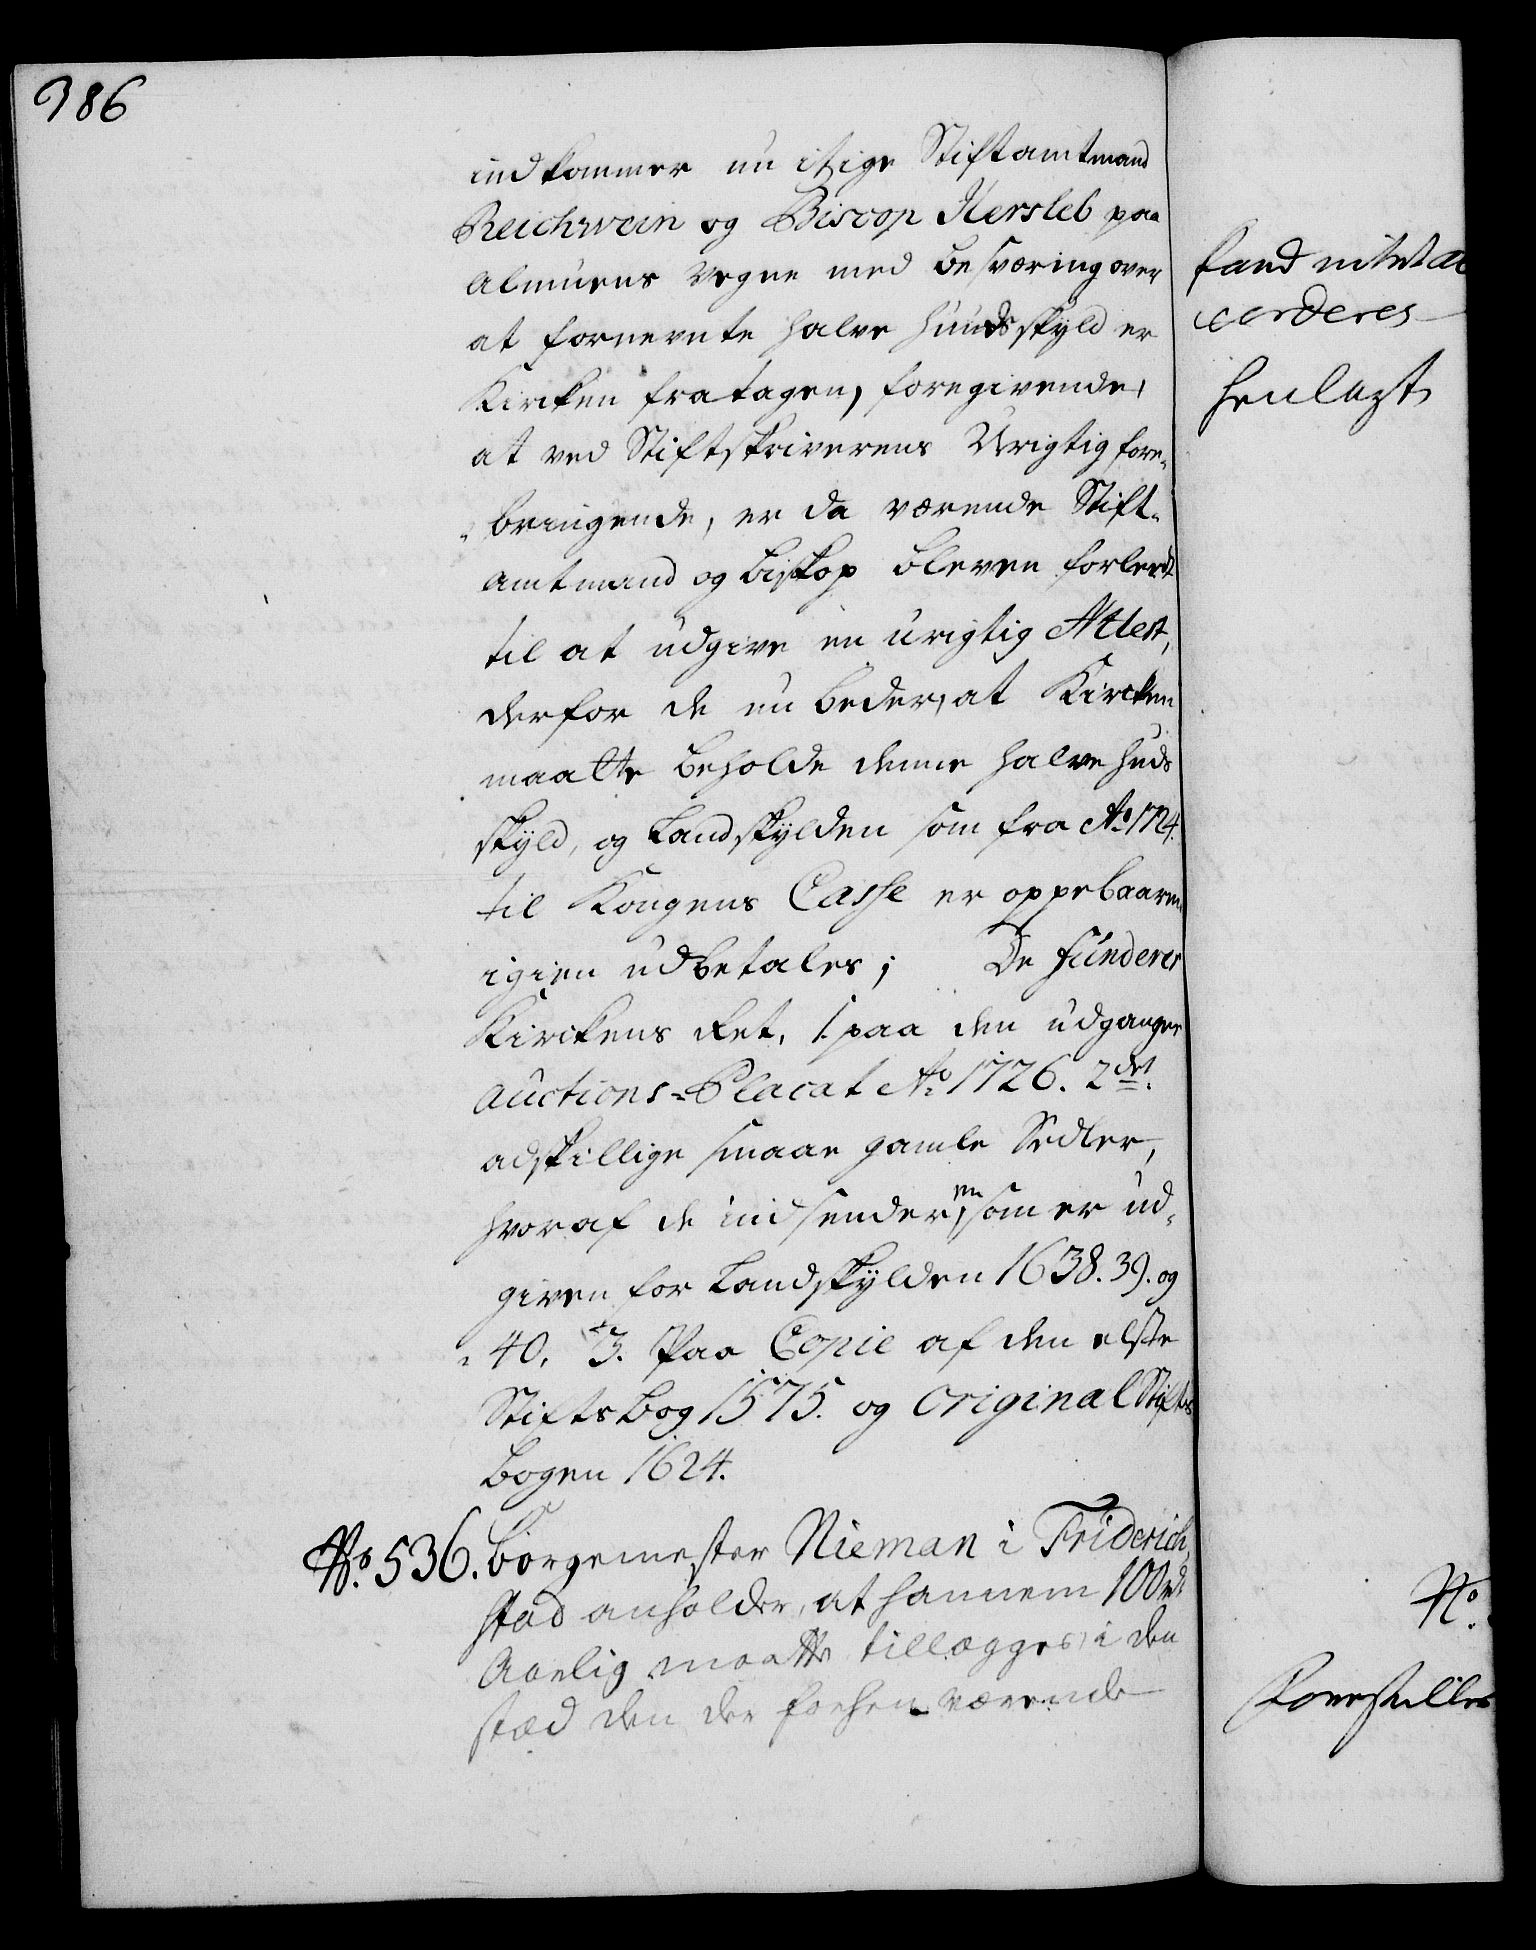 386
indkommer nu itzige Stiftamtmand
Reichwein og Biscop Hersleb paa
Almuens Vegne med besværing over
at fornevnte halve huuds skyld er
Kircken fratagen, foregivende,
at ved Stiftskriverens Urigtig fore-
bringende, er da værende Stift-
amtmand og biskop bleven forleedt
til at udgive en urigtig Attest,
derfor de nu beder, at Kircken
maatte beholde denne halve huds
skyld, og Landskylden som fra Ao 1724.
til Kongens Casse er oppebaaren
igien udbetales; De funderer
Kirckens Ret, 1. paa den udgangne
Auctions-Placat Ao 1726. 2det
adskillige smaae gamle Sedler,
hvoraf de indsender en, som er ud-
given for Landskylden 1638. 39. og
40. 3. Paa Copie af den elste
Stiftsbog 1575. og original Stifts
bogen 1624.
No. 536. Borgemester Nieman i Friderich-
stad anholder, at hannem 100 rdr
Aarlig maatte tillægges, i den
stæd den der forhen værende
fand nitet ac
corderes
henlagt
No.
Forestilles